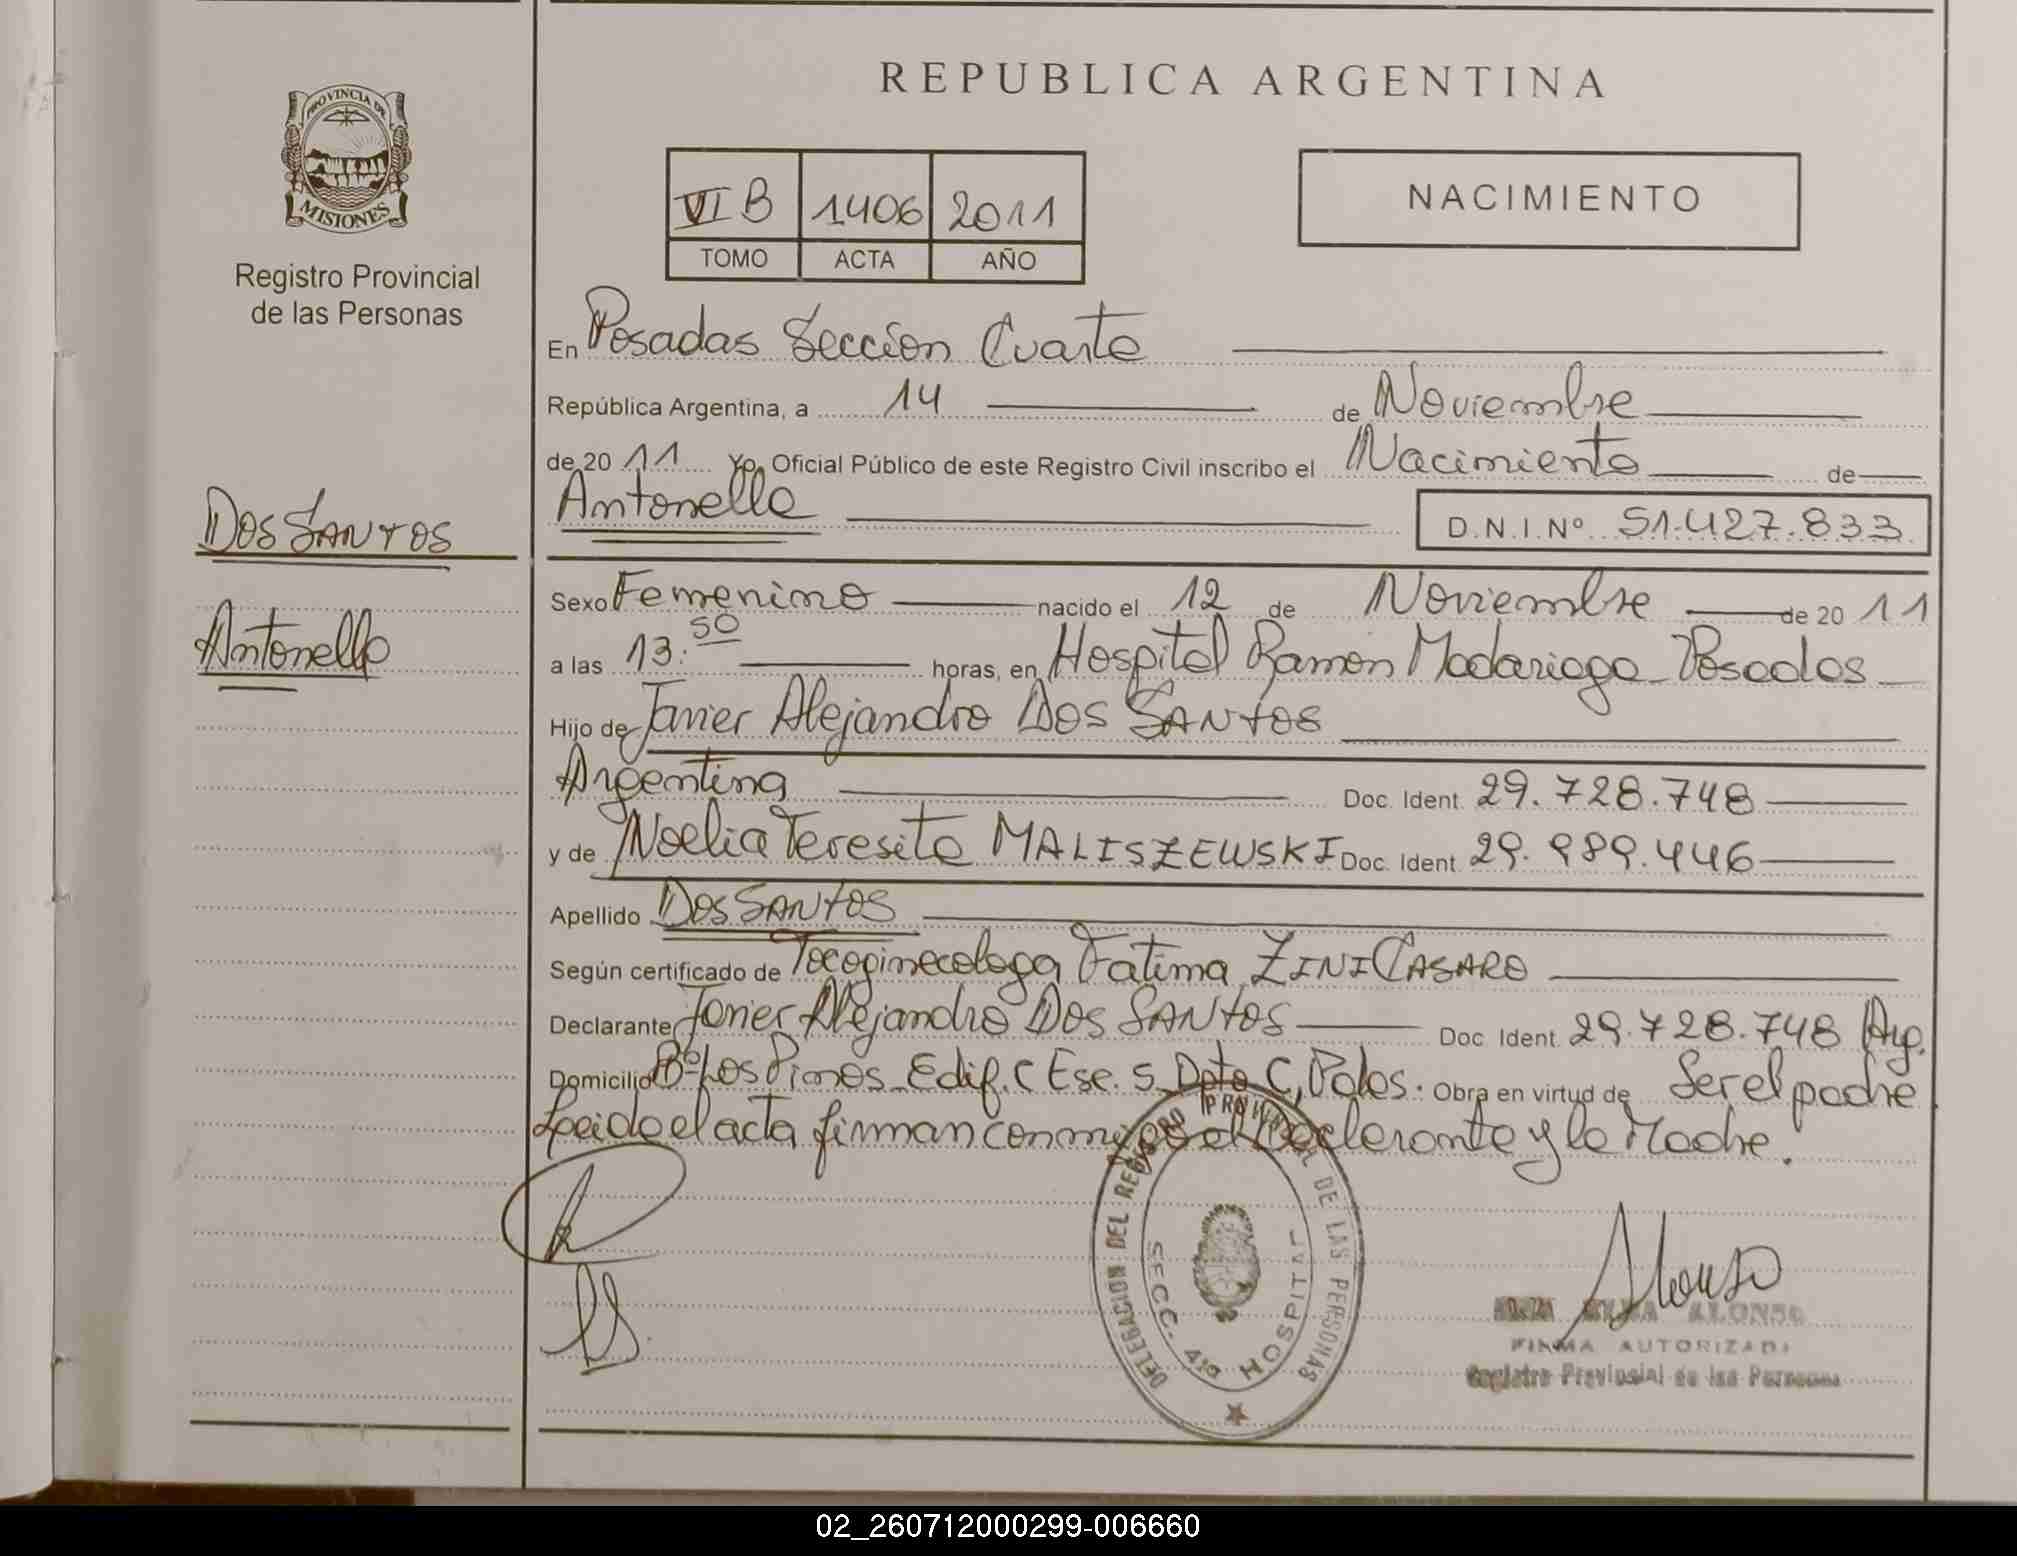 REPUBLICA ARGENTINA
PROVINCIA DE
MISIONES
Registro Provincial
de las Personas
VI B 1406 2011
TOMO ACTA AÑO
NACIMIENTO
En Posadas Sección Cuarta
República Argentina, a 14 de Noviembre
de 20 11 Yo, Oficial Público de este Registro Civil inscribo el Nacimiento de
Antonella D.N.I.Nº 51.427.833
DOS SANTOS
Antonella
Sexo Femenino nacido el 12 de Noviembre de 20 11
a las 13:50 horas, en Hospital Ramón Madariaga - Posadas
Hijo de Javier Alejandro DOS SANTOS
Argentina Doc. Ident. 29.728.748
y de Noelia Teresita MALISZEWSKI Doc. Ident. 29.989.446
Apellido DOS SANTOS
Según certificado de Tocoginecologa Fatima ZINI CASARO
Declarante Javier Alejandro DOS SANTOS Doc. Ident. 29.728.748 Arg.
Domicilio Bº Los Pinos Edif. C Esc. 5 Dpto C, Pdas. Obra en virtud de Ser el padre
Leido el acta firman conmigo el Declarante y la Madre.
DELEGACION DEL REGISTRO PROVINCIAL DE LAS PERSONAS
SECC. 4ta HOSPITAL
Alonso
ALONSO
FIRMA AUTORIZADA
Registro Provincial de las Personas
02_260712000299-006660